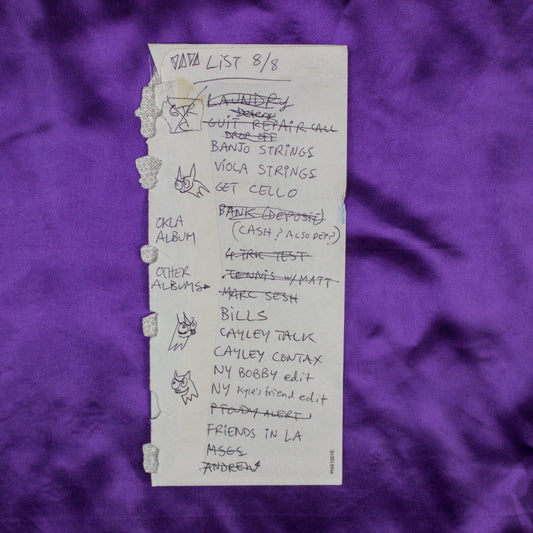 LIST 8/8
LAUNDRY
GUIT REPAIR CALL
DROP OFF
BANJO STRINGS
VIOLA STRINGS
GET CELLO
BANK (DEPOSIT)
(CASH? ALSO DEP?)
OKLA
ALBUM
4 TRK TEST
OTHER
ALBUMS
TENNIS W/ MATT
MARC SESH
BILLS
CAYLEY TALK
CAYLEY CONTAX
NY BOBBY edit
NY Kyle's friend edit
ALERT
FRIENDS IN LA
MSGS
ANDREW